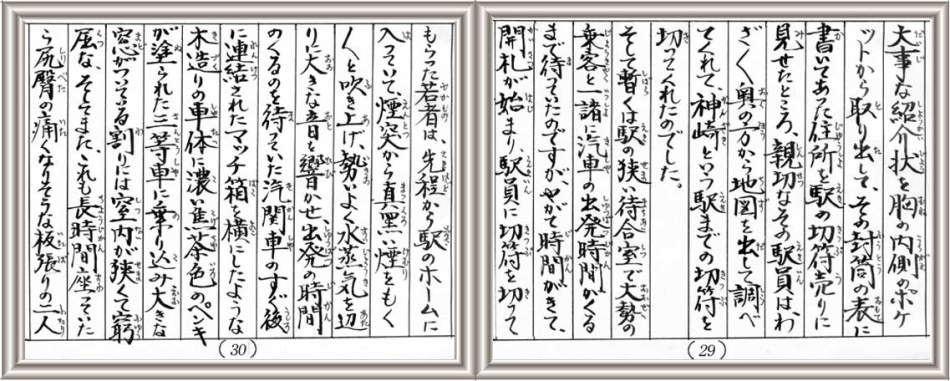 大事な紹介状を胸の内側のポケ
ットから取り出して、その封筒の表に
書いてあった住所を駅の切符売りに
見せたところ、親切なその駅員はわ
ざく奥の方から地図を出して調べ
てくれて、神崎という駅までの切符を
切ってくれたのでした。
そして暫くは駅の狭い待合室で大勢の
乗客と一諸に汽車の出発時間がくる
まで待っていたのですが、やがて時間がきて、
開札が始まり、駅員に切符を切って
(29)
もらった若者は、先程から駅のホームに
入っていて、煙突から真黒い煙をもく
くと吹き上げ、勢いよく水蒸気を辺
りに大きな音を響かせ、出発の時間
のくるのを待っていた汽関車のすぐ後
に連結されたマッチ箱を横にしたような
木造りの車体に濃い焦茶色のペンキ
が塗られた三等車に乗り込み大きな
窓がついている割りには室内が狭くて窮
屈な、そしてまた、これも長時間座っていた
ら尻臀の痛くなりそうな板張りの二人
(30)